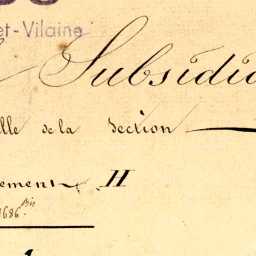 et-Vilaine
Subsidi
lle de la Section
ement H
1686 bis